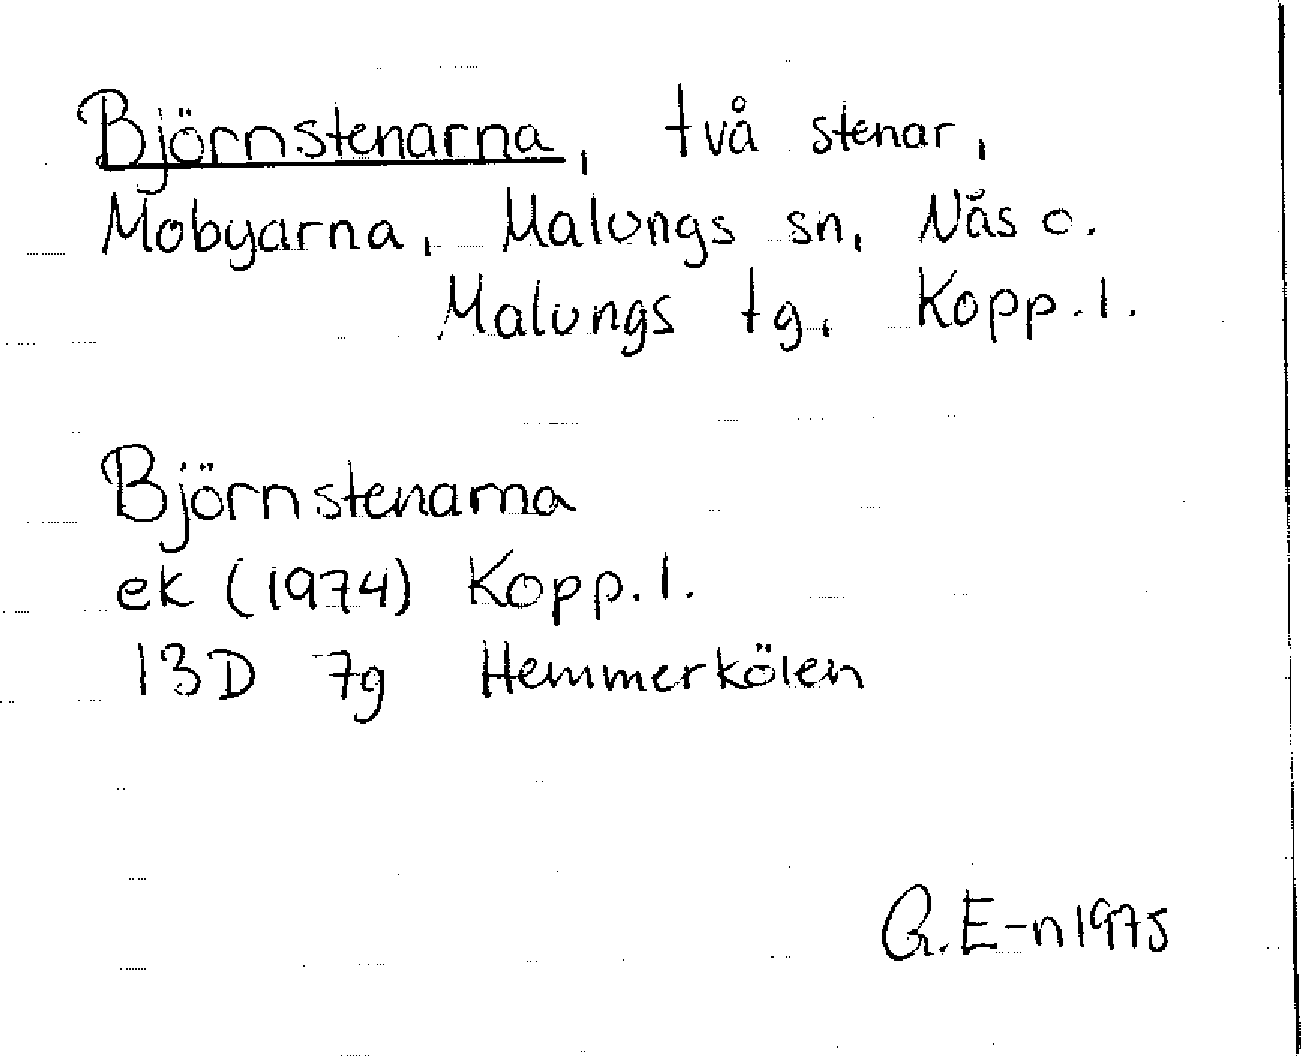 Björnstenarna, två stenar,
Mobyarna, Malungs sn, Nås o.
Malungs tg, Kopp. l.
Björnstenarna
ek (1974) Kopp. l.
13D 7g Hemmerkölen
G. E-n 1975